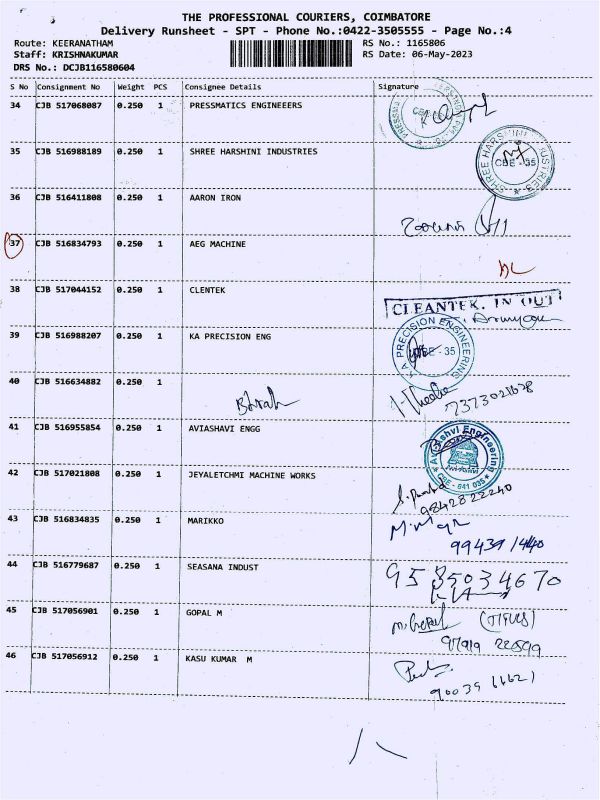 THE PROFESSIONAL COURIERS, COIMBATORE
Delivery Runsheet - SPT - Phone No.:0422-3505555 - Page No.:4
Route: KEERANATHAM
Staff: KRISHNAKUMAR
DRS No.: DCJB116580604
RS No.: 1165806
RS Date: 06-May-2023
S No Consignment No Weight PCS Consignee Details Signature
34 CJB 517068087 0.250 1 PRESSMATICS ENGINEEERS
35 CJB 516988189 0.250 1 SHREE HARSHINI INDUSTRIES
SHREE HARSHINI INDUSTRIES CBE - 35
36 CJB 516411808 0.250 1 AARON IRON
37 CJB 516834793 0.250 1 AEG MACHINE
38 CJB 517044152 0.250 1 CLENTEK
CLEANTEK. IN OUT
39 CJB 516988207 0.250 1 KA PRECISION ENG
KA PRECISION ENGINEERING CBE - 35
40 CJB 516634882 0.250 1
7373021678
41 CJB 516955854 0.250 1 AVIASHAVI ENGG
Engineering CBE - 641 035
42 CJB 517021808 0.250 1 JEYALETCHMI MACHINE WORKS
9842822240
43 CJB 516834835 0.250 1 MARIKKO
44 CJB 516779687 0.250 1 SEASANA INDUST
9585034670
45 CJB 517056901 0.250 1 GOPAL M
M. Gopal
46 CJB 517056912 0.250 1 KASU KUMAR M
90039 11621